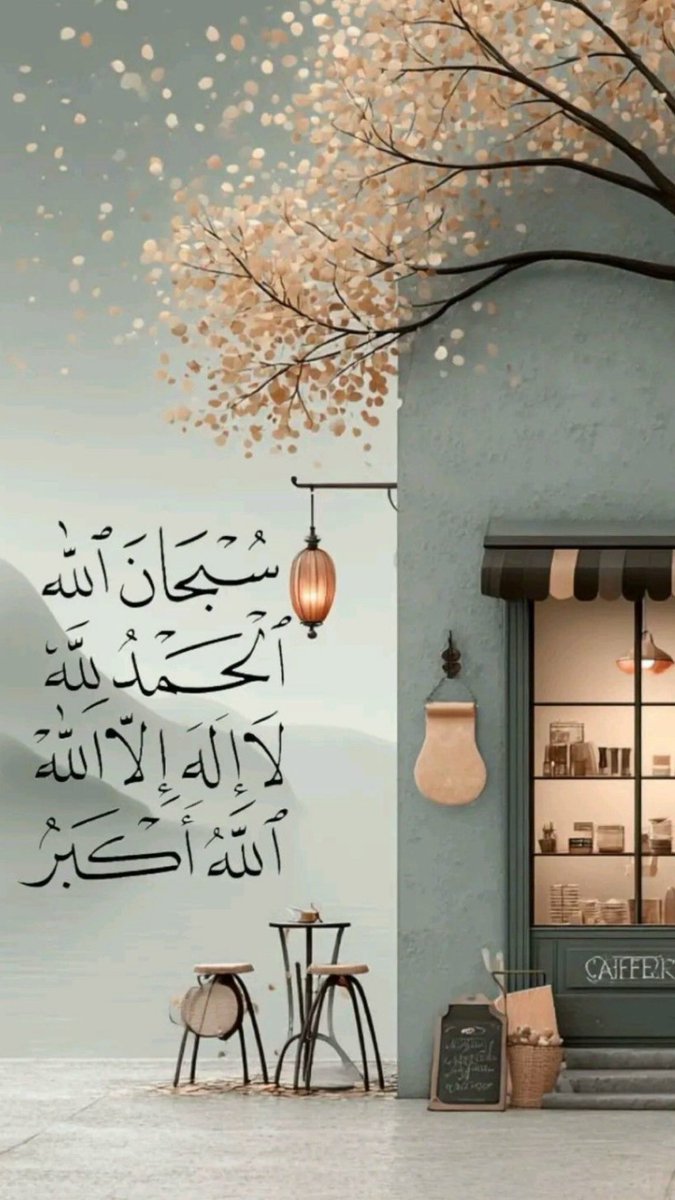 سُبْحَانَ ٱللّٰه
ٱلْحَمْدُ لِلَّهِ
لَا إِلَهَ إِلَّا ٱللّٰهْ
ٱللَّهُ أَكْبَرُ